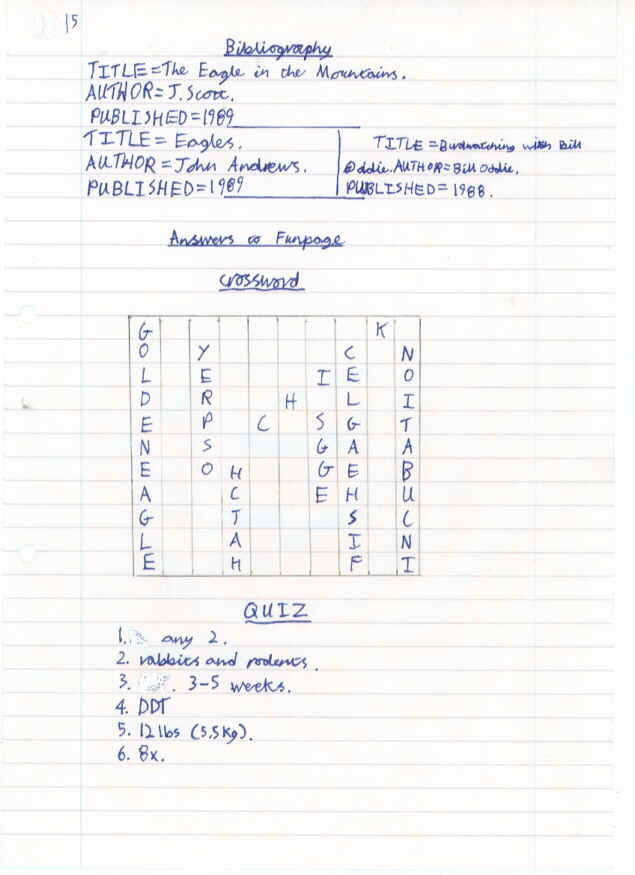 15
Bibliography
TITLE=The Eagle in the Mountains.
AUTHOR=J.Scott.
PUBLISHED=1989
TITLE=Eagles.
AUTHOR=John Andrews.
PUBLISHED=1989
TITLE=Birdwatching with Bill
Oddie.AUTHOR=Bill Oddie.
PUBLISHED=1988.
Answers to Funpage
Crossword
G K
O Y C N
L E I E O
D R H L I
E P C S G T
N S G A A
E O H G E B
A C E H U
G T S C
L A I N
E H F I
QUIZ
1. any 2.
2. rabbits and rodents.
3. 3-5 weeks.
4. DDT
5. 12 lbs (5.5Kg).
6. 8x.